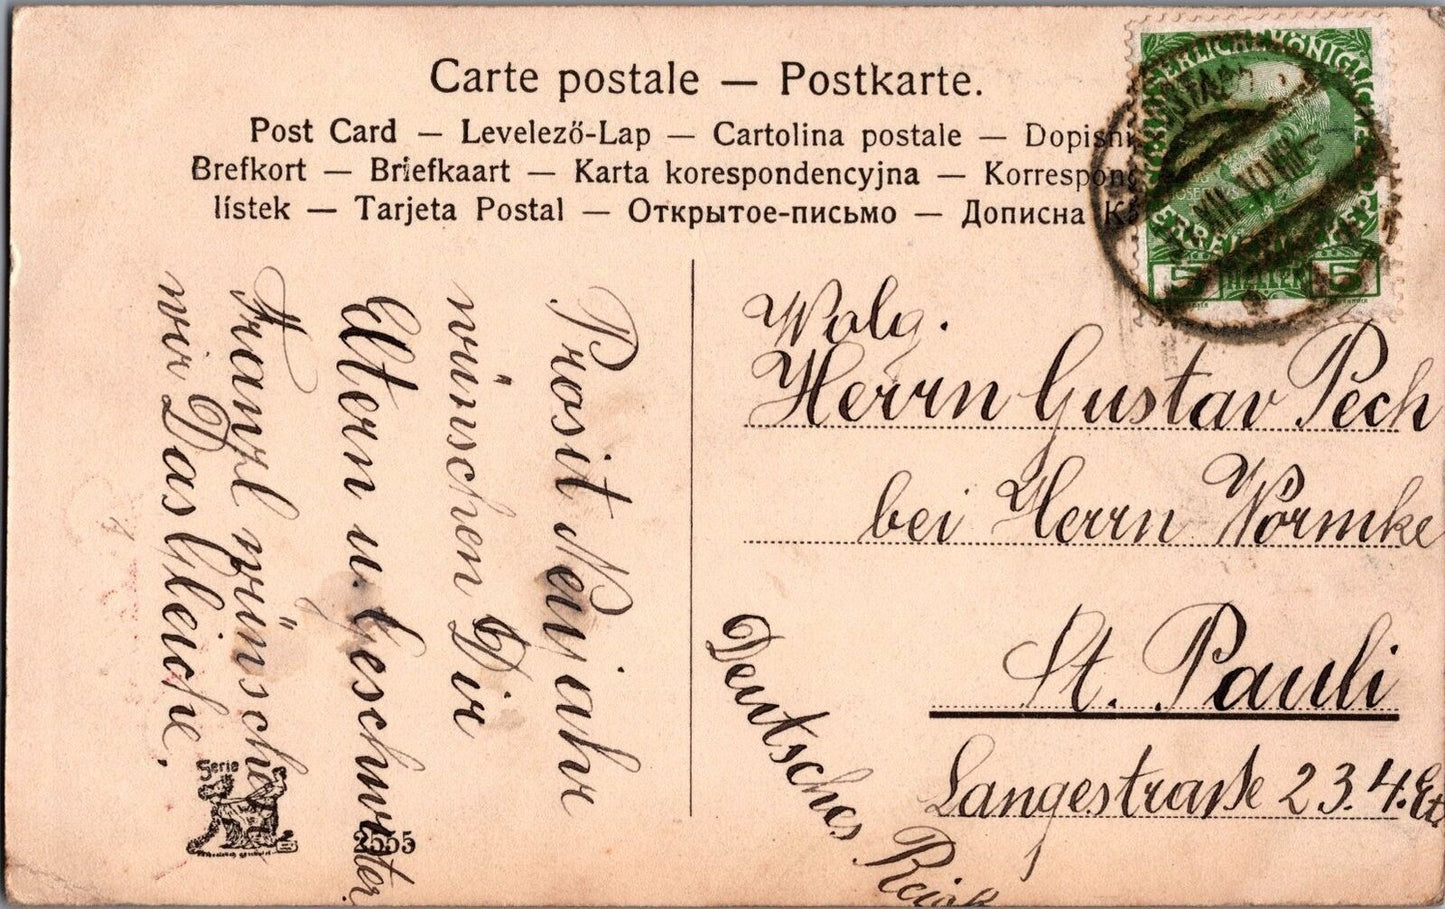 Carte postale — Postkarte.
Post Card — Levelező-Lap — Cartolina postale — Dopisni
Brefkort — Briefkaart — Karta korespondencyjna — Korrespon
lístek — Tarjeta Postal — Открытое-письмо — Дописна
5 HELLER 5
Prosit Neujahr
wünschen Dir
Eltern u. Geschwister.
Franzl wünsche
wir Das Gleiche.
Serie
2555
Wolg.
Herrn Gustav Pech
bei Herrn Wormke
St. Pauli
Langestraße 23. 4. Et.
Deutsches Reich